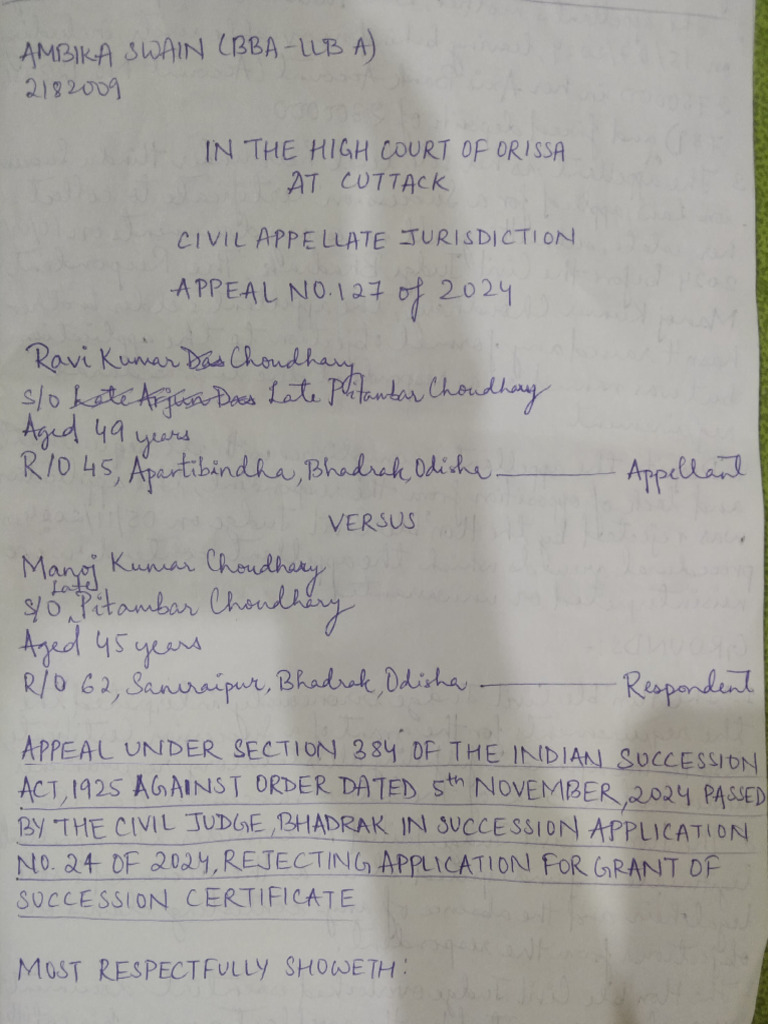 AMBIKA SWAIN (BBA-LLB A)
2182009
IN THE HIGH COURT OF ORISSA
AT CUTTACK
CIVIL APPELLATE JURISDICTION
APPEAL NO.127 of 2024
Ravi Kumar Das Choudhary
S/O Late Arjun Das Late Pitambar Choudhary
Aged 49 years
R/O 45, Apartibindha, Bhadrak, Odisha ——— Appellant
VERSUS
Manoj Kumar Choudhary
S/O Late Pitambar Choudhary
Aged 45 years
R/O 62, Samraipur, Bhadrak, Odisha ——— Respondent
APPEAL UNDER SECTION 384 OF THE INDIAN SUCCESSION
ACT, 1925 AGAINST ORDER DATED 5th NOVEMBER, 2024 PASSED
BY THE CIVIL JUDGE, BHADRAK IN SUCCESSION APPLICATION
NO. 24 OF 2024, REJECTING APPLICATION FOR GRANT OF
SUCCESSION CERTIFICATE
MOST RESPECTFULLY SHOWETH: